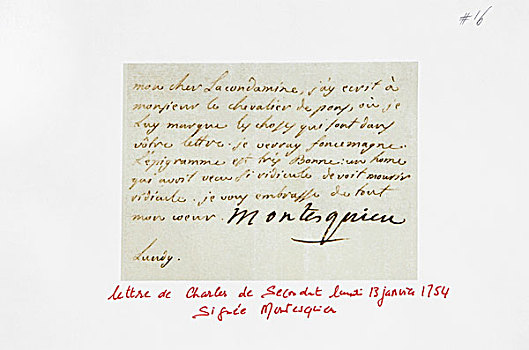 #16
mon cher Lacondamine, j'ay ecrit à
monsieur le chevalier de pons, où je
luy marque les choses qui sont dans
vôtre lettre. je verray foncemagne.
L'epigramme est trés bonne: un home
qui avoit vecu si ridicule devoit mourir
ridicule. je vous embrasse de tout
mon coeur. Montesquieu
Lundy.
lettre de Charles de Secondat lundi 13 janvier 1754
Signée Montesquieu